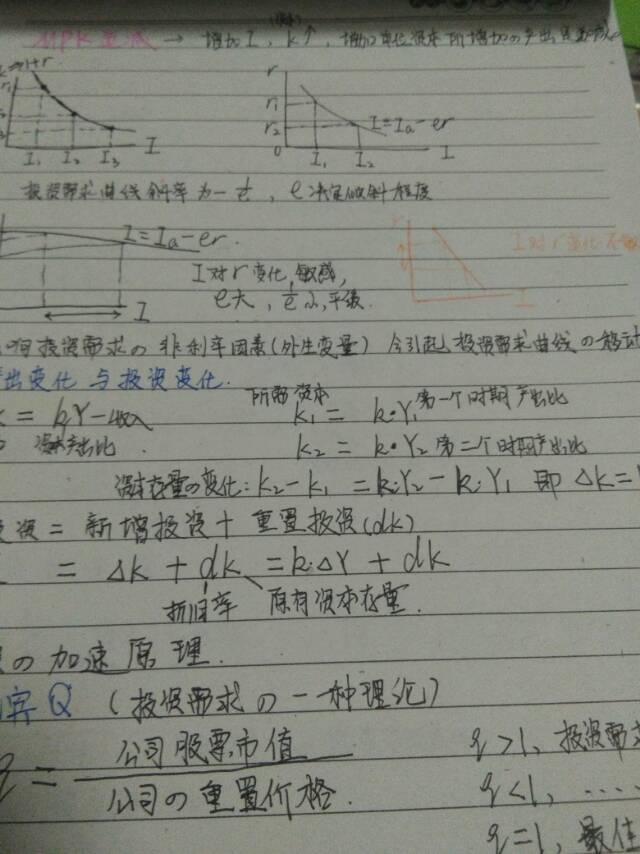 MPK递减 → 增加I, k↑, 增加单位资本所增加の产出
r
r₁
r₂
0
I₁ I₂ I₃ I
I₁ I₂ I
I=Iₐ-er
投资需求曲线斜率为-1/e, e决定倾斜程度
I=Iₐ-er.
I
I对r变化敏感,
e大, 1/e小, 平缓.
r
I
I对r变化不
投资需求の非利率因素(外生变量) 会引起投资需求曲线の移动
出变化与投资变化.
= kY-
所需资本
k₁ = k·Y₁ 第一个时期产出比
资本产出比
k₂ = k·Y₂ 第二个时期产出比
资本存量の变化: k₂-k₁ = k·Y₂-k·Y₁ 即 Δk=
资 = 新增投资+重置投资(dk)
= Δk + dk = k·ΔY + dk
折旧率 原有资本存量.
の加速原理.
宾Q (投资需求の一种理论)
q = 公司股票市值
公司の重置价格.
q>1, 投资需求
q<1, ....
q=1, 最佳